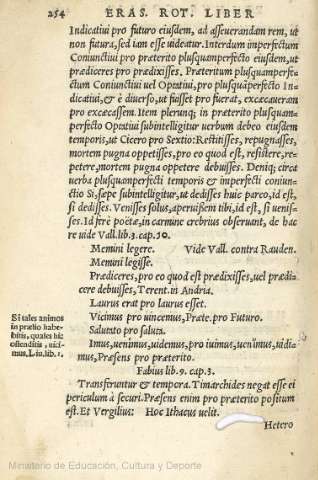 254 ERAS. ROT. LIBER
Indicatiui pro futuro eiusdem, ad asseuerandam rem, ut
non futura, sed iam esse uideatur. Interdum imperfectum
Coniunctiui pro præterito plusquamperfecto eiusdem, ut
prædiceres pro prædixisses. Præteritum plusquamperfe-
ctum Coniunctiui uel Optatiui, pro plusquamperfecto In-
dicatiui, & è diuerso, ut fuisset pro fuerat, excæcaueram
pro excæcassem. Item plerunq; in præterito plusquam-
perfecto Optatiui subintelligitur uerbum debeo eiusdem
temporis, ut Cicero pro Sextio: Restitisses, repugnasses,
mortem pugna oppetisses, pro eo quod est, resistere, re-
petere, mortem pugna oppetere debuisses. Deniq; circa
uerba plusquamperfecti temporis & imperfecti coniun-
ctio Si, sæpe subintelligitur, ut dedisses huic parco, id est,
si dedisses. Venisses solus, aperuissem tibi, id est, si uenis-
ses. Id ferè poëtæ, in carmine crebrius obseruant, de hac
re uide Vall. lib. 3. cap. 50.
Memini legere. Vide Vall. contra Rauden.
Memini legisse.
Prædiceres, pro eo quod est prædixisses, uel prædi-
cere debuisses, Terent. in Andria.
Laurus erat pro laurus esset.
Si tales animos
in prælio habe-
bitis, quales hic
ostenditis, uici-
mus, Liu. lib. 1.
Vicimus pro uincemus, Præte. pro Futuro.
Salutato pro saluta.
Imus, uenimus, uidemus, pro iuimus, uenimus, uidi-
mus, Præsens pro præterito.
Fabius lib. 9. cap. 3.
Transferuntur & tempora. Timarchides negat esse ei
periculum à securi. Præsens enim pro præterito positum
est. Et Vergilius: Hoc Ithacus uelit.
Hetero
Ministerio de Educación, Cultura y Deporte